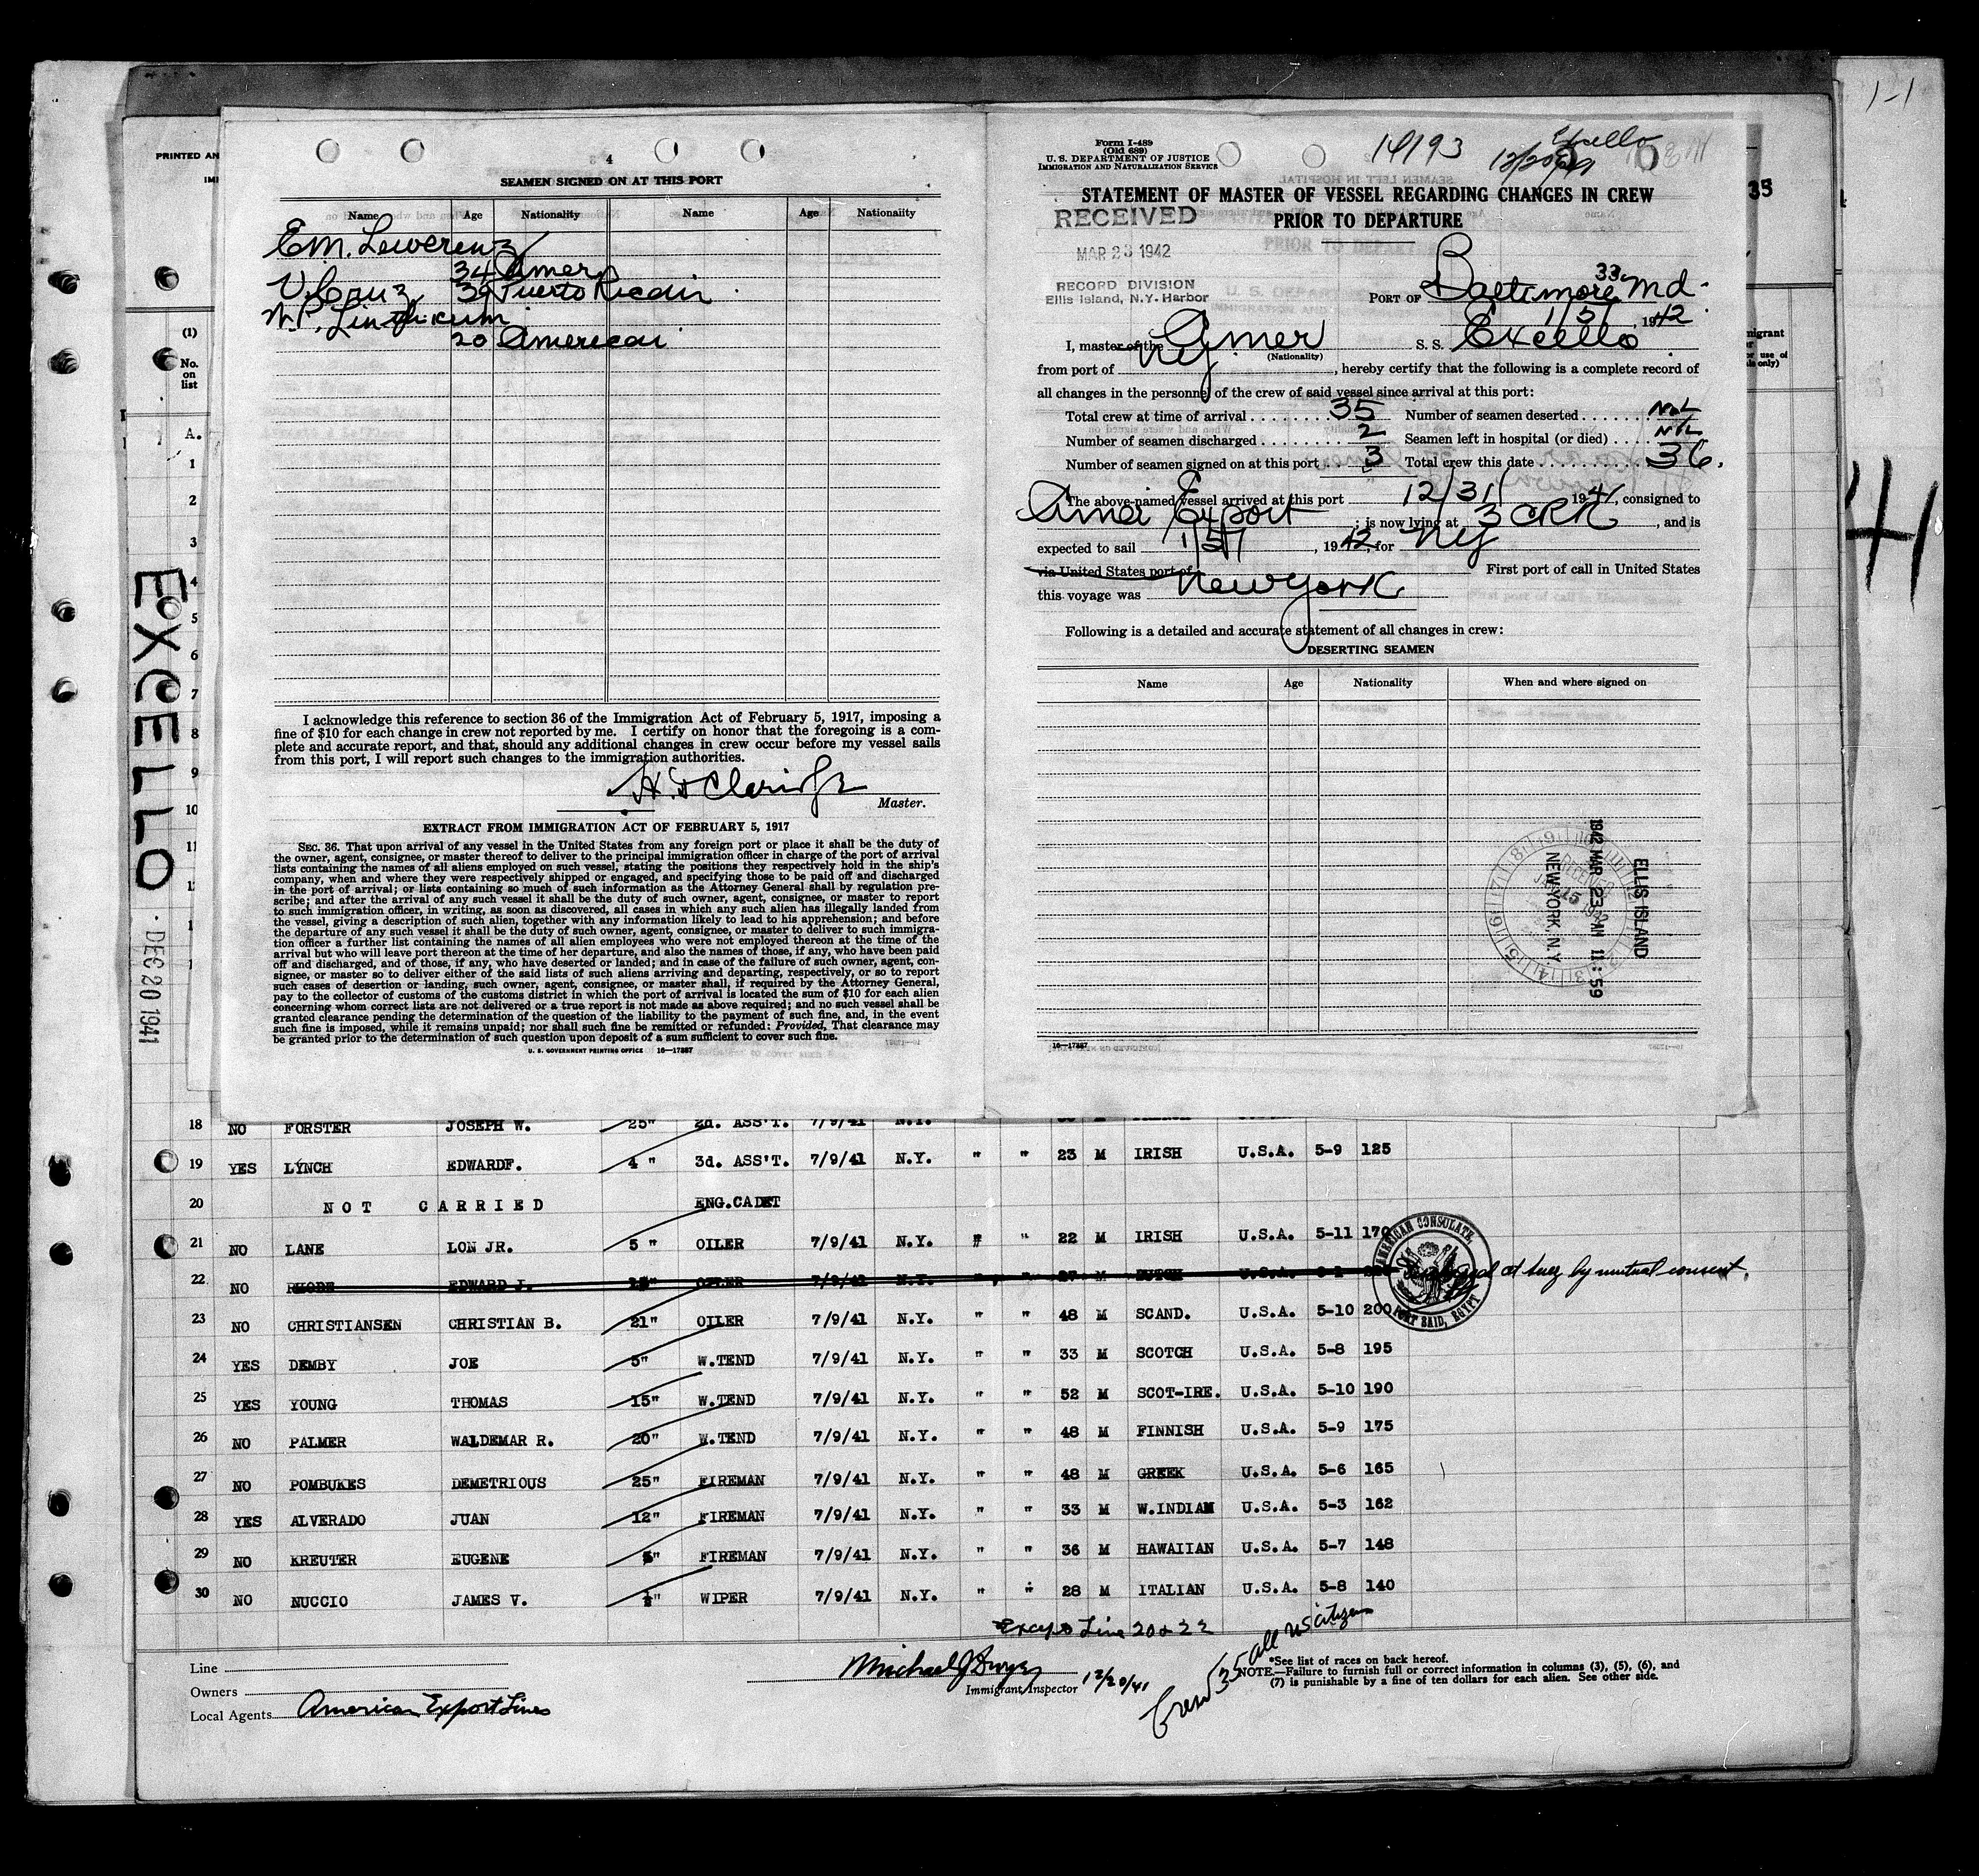 1-1
35
PRINTED AN
IMI
(1)
No.
on
list
A.
1
2
3
4
5
6
7
8
9
10
11
EXCELLO
DEC 20 1941
4
SEAMEN SIGNED ON AT THIS PORT
Name Age Nationality Name Age Nationality
E.M. Leweren
34 Amer
V. Cruz 39 Puerto Rican
20 American
I acknowledge this reference to section 36 of the Immigration Act of February 5, 1917, imposing a
fine of $10 for each change in crew not reported by me. I certify on honor that the foregoing is a com-
plete and accurate report, and that, should any additional changes in crew occur before my vessel sails
from this port, I will report such changes to the immigration authorities.
Master.
EXTRACT FROM IMMIGRATION ACT OF FEBRUARY 5, 1917
SEC. 36. That upon arrival of any vessel in the United States from any foreign port or place it shall be the duty of
the owner, agent, consignee, or master thereof to deliver to the principal immigration officer in charge of the port of arrival
lists containing the names of all aliens employed on such vessel, stating the positions they respectively hold in the ship's
company, when and where they were respectively shipped or engaged, and specifying those to be paid off and discharged
in the port of arrival; or lists containing so much of such information as the Attorney General shall by regulation pre-
scribe; and after the arrival of any such vessel it shall be the duty of such owner, agent, consignee, or master to report
to such immigration officer, in writing, as soon as discovered, all cases in which any such alien has illegally landed from
the vessel, giving a description of such alien, together with any information likely to lead to his apprehension; and before
the departure of any such vessel it shall be the duty of such owner, agent, consignee, or master to deliver to such immigra-
tion officer a further list containing the names of all alien employees who were not employed thereon at the time of the
arrival but who will leave port thereon at the time of her departure, and also the names of those, if any, who have been paid
off and discharged, and of those, if any, who have deserted or landed; and in case of the failure of such owner, agent, con-
signee, or master so to deliver either of the said lists of such aliens arriving and departing, respectively, or so to report
such cases of desertion or landing, such owner, agent, consignee, or master shall, if required by the Attorney General,
pay to the collector of customs of the customs district in which the port of arrival is located the sum of $10 for each alien
concerning whom correct lists are not delivered or a true report is not made as above required; and no such vessel shall be
granted clearance pending the determination of the question of the liability to the payment of such fine, and, in the event
such fine is imposed, while it remains unpaid; nor shall such fine be remitted or refunded: Provided, That clearance may
be granted prior to the determination of such question upon deposit of a sum sufficient to cover such fine.
U. S. GOVERNMENT PRINTING OFFICE 16—17387
Form I-489
(Old 689)
U. S. DEPARTMENT OF JUSTICE
IMMIGRATION AND NATURALIZATION SERVICE
14193
Excello
12/20/41
STATEMENT OF MASTER OF VESSEL REGARDING CHANGES IN CREW
PRIOR TO DEPARTURE
RECEIVED
MAR 23 1942
RECORD DIVISION
Ellis Island, N.Y. Harbor
33
PORT OF Baltimore Md.
1/5/, 1942
I, master of the Amer S. S. Excello
(Nationality)
from port of NY, hereby certify that the following is a complete record of
all changes in the personnel of the crew of said vessel since arrival at this port:
Total crew at time of arrival 35 Number of seamen deserted NIL
Number of seamen discharged 2 Seamen left in hospital (or died) NIL
Number of seamen signed on at this port 3 Total crew this date 36.
The above-named vessel arrived at this port 12/31/ 1941, consigned to
Amer Export; is now lying at 3 CRR, and is
expected to sail 1/5/, 1942, for NY
via United States port of First port of call in United States
this voyage was New York
Following is a detailed and accurate statement of all changes in crew:
DESERTING SEAMEN
Name Age Nationality When and where signed on
ELLIS ISLAND
1942 MAR 23 AM 11:59
NEW YORK, N.Y.
RECEIVED
15 1942
16—17387
18 NO FORSTER JOSEPH W. 25" 2d. ASS'T. 7/9/41 N.Y.
19 YES LYNCH EDWARDF. 4 " 3d. ASS'T. 7/9/41 N.Y. " " 23 M IRISH U.S.A. 5-9 125
20 NOT CARRIED ENG.CADET
21 NO LANE LON JR. 5 " OILER 7/9/41 N.Y. " " 22 M IRISH U.S.A. 5-11 170
22 NO RHODE EDWARD J. OILER 7/9/41 N.Y. " " 27 M DUTCH U.S.A. at Suez by mutual consent.
AMERICAN CONSULATE, PORT SAID, EGYPT
23 NO CHRISTIANSEN CHRISTIAN B. 21" OILER 7/9/41 N.Y. " " 48 M SCAND. U.S.A. 5-10 200
24 YES DEMBY JOE 5" W.TEND 7/9/41 N.Y. " " 33 M SCOTCH U.S.A. 5-8 195
25 YES YOUNG THOMAS 15" W.TEND 7/9/41 N.Y. " " 52 M SCOT-IRE. U.S.A. 5-10 190
26 NO PALMER WALDEMAR R. 20" W.TEND 7/9/41 N.Y. " " 48 M FINNISH U.S.A. 5-9 175
27 NO POMBUKES DEMETRIOUS 25" FIREMAN 7/9/41 N.Y. " " 48 M GREEK U.S.A. 5-6 165
28 YES ALVERADO JUAN 12" FIREMAN 7/9/41 N.Y. " " 33 M W.INDIAN U.S.A. 5-3 162
29 NO KREUTER EUGENE 5" FIREMAN 7/9/41 N.Y. " " 36 M HAWAIIAN U.S.A. 5-7 148
30 NO NUCCIO JAMES V. ½" WIPER 7/9/41 N.Y. " " 28 M ITALIAN U.S.A. 5-8 140
Except Line 20 & 22
Crew 35 all US citizens
Line
Owners
Local Agents American Export Lines
Michael J Dwyer 12/20/41
Immigrant Inspector
*See list of races on back hereof.
NOTE.—Failure to furnish full or correct information in columns (3), (5), (6), and
(7) is punishable by a fine of ten dollars for each alien. See other side.